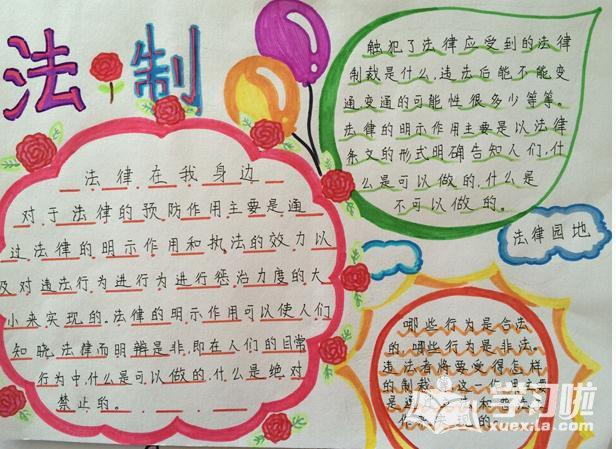 法制
法律在我身边
对于法律的预防作用主要是通
过法律的明示作用和执法的效力以
及对违法行为进行为进行惩治力度的大
小来实现的.法律的明示作用可以使人们
知晓.法律而明辨是非,即在人们的日常
行为中.什么是可以做的.什么是绝对
禁止的。
触犯了法律应受到的法律
制裁是什么,违法后能不能变
通变通的可能性很多少等等。
法律的明示作用主要是以法律
条文的形式明确告知人们,什
么是可以做的.什么是
不可以做的。
法律园地
哪些行为是合法
的,哪些行为是非法。
违法者将要受得怎样
的制裁
这一
学习啦
xuexi.la.com